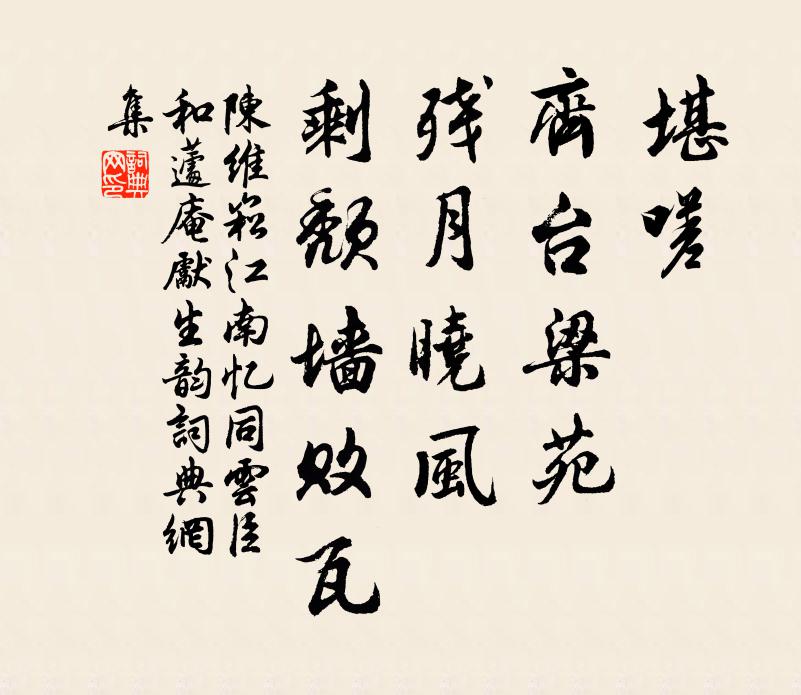 堪嗟
齊台梁苑
残月曉風
剩頹墙敗瓦
陳維崧江南忆同雲臣
和蘧庵獻生韵詞典網
集
詞典網印